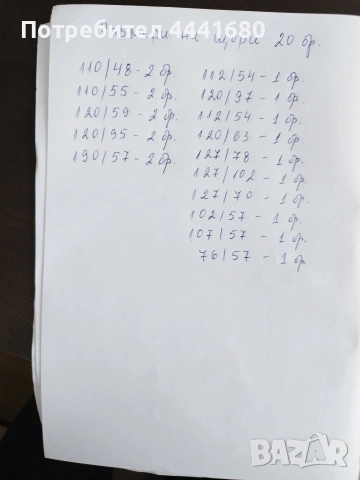 Потребител 4441680
на щори 20 бр.
110/48 - 2 бр.
110/55 - 2 бр.
120/59 - 2 бр.
120/95 - 2 бр.
190/57 - 2 бр.
112/54 - 1 бр.
120/97 - 1 бр.
112/54 - 1 бр.
120/63 - 1 бр.
127/78 - 1 бр.
127/102 - 1 бр.
127/70 - 1 бр.
102/57 - 1 бр.
107/57 - 1 бр.
76/57 - 1 бр.
BAZAR